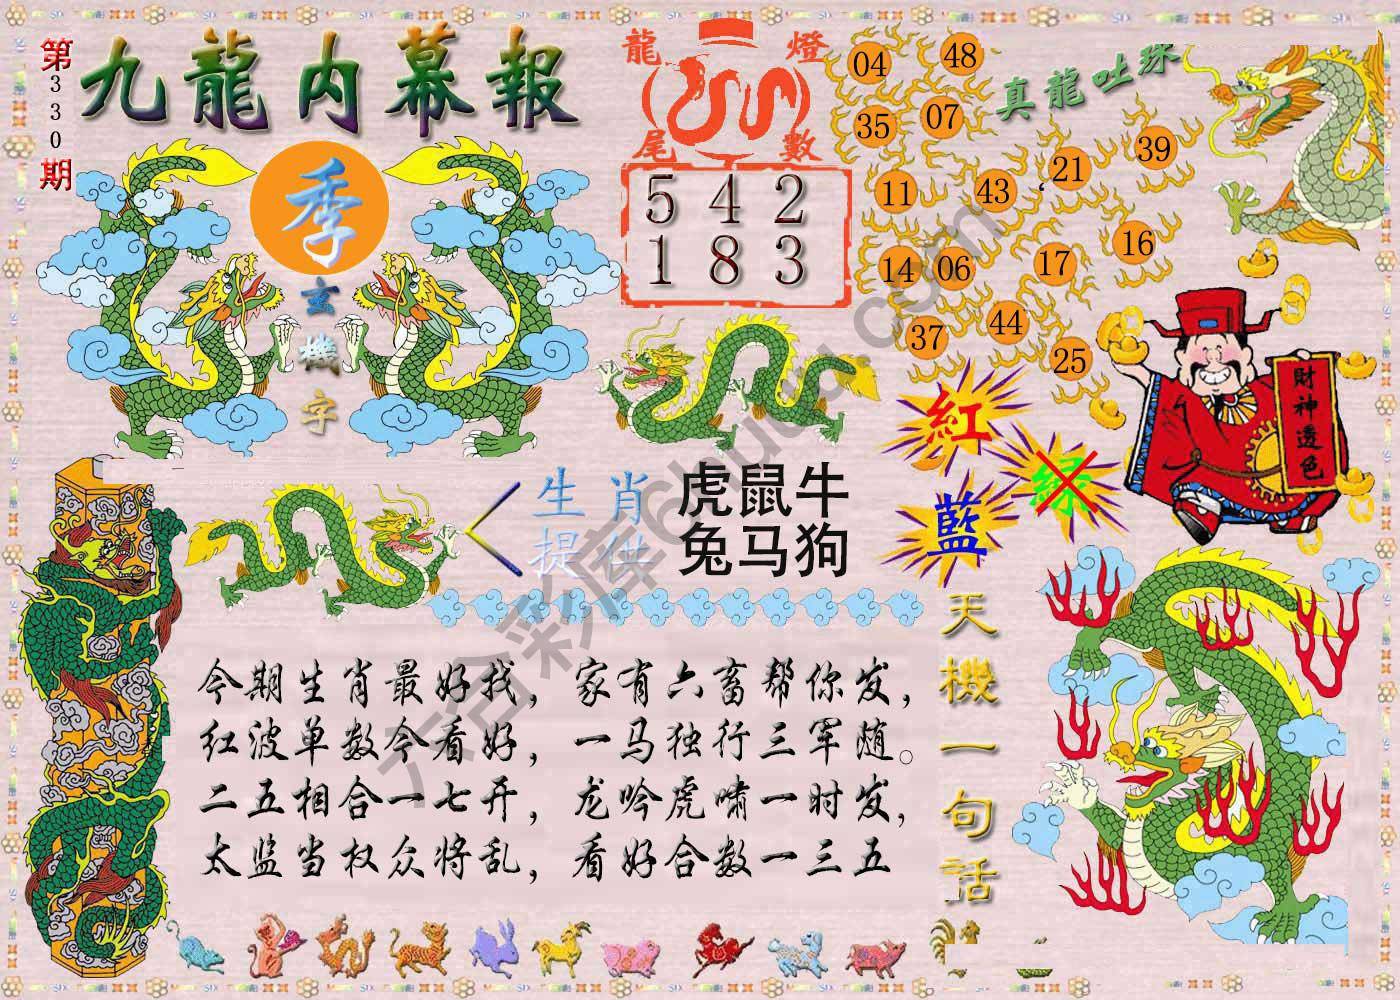 第330期
九龍内幕報
季
玄機字
龍燈尾數
5 4 2
1 8 3
04 48
35 07
11 43 21 39
14 06 17 16
37 44 25
真龍吐珠
財神透色
紅
綠
藍
生肖 虎鼠牛
提供 兔马狗
今期生肖最好找，家有六畜帮你发，
红波单数今看好，一马独行三军随。
二五相合一七开，龙吟虎啸一时发，
太监当权众将乱，看好合数一三五
天機一句話
六合彩库6huuu.com